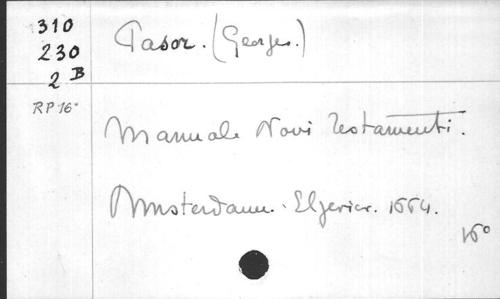 310
230
2 B
RP 16°
Pasor. (Georges.)
Manuale Novi Testamenti.
Amsterdam. Elzevier. 1664.
16°